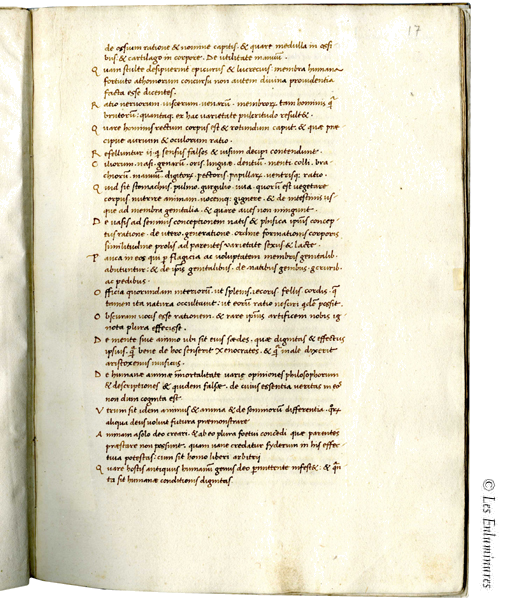 17
de ossium ratione & nomine capitis. & quare medulla in ossi
bus & cartilago in corpore. De utilitate manuũ.
Q uam stulte desipuerint epicurus & lucrecius membra humana
fortuito athomorum concursu non autem divina providentia
facta esse dicentes.
R atio nervorum viscerum venarũ membrorꝫ tam hominis
brutorũ: quantaqꝫ ex hac varietate pulcritudo resultet.
Q uare hominis rectum corpus est & rotundum caput. & quæ præ
cipue aurium & oculorum ratio.
R efelluntur ii qui sensus falsos & visum decipi contendunt.
C iliorum. nasi. genarũ. oris. linguæ. dentiũ. menti. colli. bra
chiorũ. manuũ. digitorꝫ. pectoris. papillarꝫ. ventrisqꝫ ratio.
Q uid sit stomachus. pulmo. gurgulio. vvia. quorũ est vegetare
corpus. nutrire animam. vocemqꝫ gignere. & de intestinis us
que ad membra genitalia. & quare aves non mingunt.
D e vasis ad seminis conceptionem natis & phisica ipsius concep
tus ratione. de utero. generatione. ordine formationis corporis
similitudine prolis ad parentes. varietate sexus & lacte.
P auca in eos qui p flagicia ac voluptatem membris genitalib.
abutuntur: & de ipsis genitalibus. de natibus genibus. cruribꝫ.
ac pedibus.
O fficia quorundam interiorũ. ut splenis. iecoris. fellis. cordis.
tamen ita natura occultavit: ut eorũ ratio nesciri possit.
O bscuram vocis esse rationem. & rare ipsius artificem nobis ig
nota plura effecisse.
D e mente sive animo ubi sit eius sædes. quæ dignitas & effectus
ipsius. bene de hoc senserit Xenocrates. & male dixerit
aristoxenus musicus.
D e humanæ animæ imortalitate variæ opiniones philosophorum
& descriptiones & quidem falsæ. de cuius essentia veritas
non dum cognita est.
V trum sit idem animus & anima & de somniorũ differentia.
aliqua deus voluit futura præmonstrare
A nimam a solo deo creari. & ab eo plura foetui concedi quæ parentes
præstare non possunt. quam vane credatur syderum in his effec
tiva potestas: cum sit homo liberi arbitrii
Q uare hostis antiquus humanũ genus deo pmittente infestet: &
ta sit humanæ conditionis dignitas.
© Les Enluminures